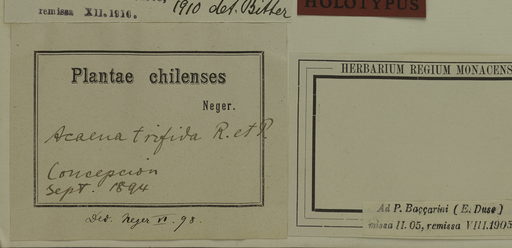 remissa XII.1916.
1910 det. Bitter
HOLOTYPUS
Plantae chilenses
Neger.
Acaena trifida R. et P.
Concepcion
Sept. 1894
Ded. Neger VI. 98.
HERBARIUM REGIUM MONACENS
Ad P. Baccarini (E. Duse)
missa II. 05, remissa VIII.1905